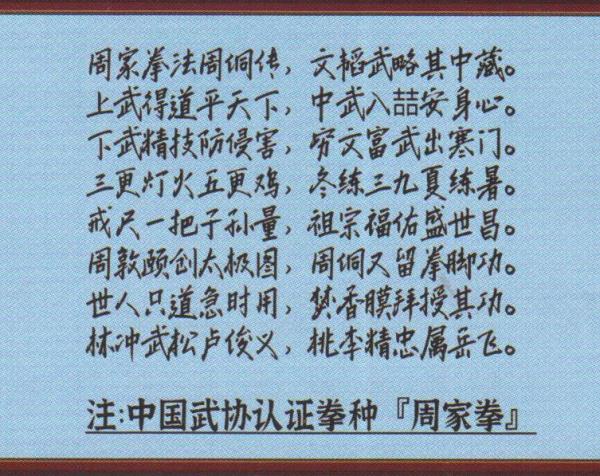 周家拳法周侗传，文韬武略其中藏。
上武得道平天下，中武入喆安身心。
下武精技防侵害，穷文富武出寒门。
三更灯火五更鸡，冬练三九夏练暑。
戒尺一把子孙量，祖宗福佑盛世昌。
周敦颐创太极图，周侗又留拳脚功。
世人只道急时用，焚香膜拜授其功。
林冲武松卢俊义，桃李精忠属岳飞。
注:中国武协认证拳种『周家拳』